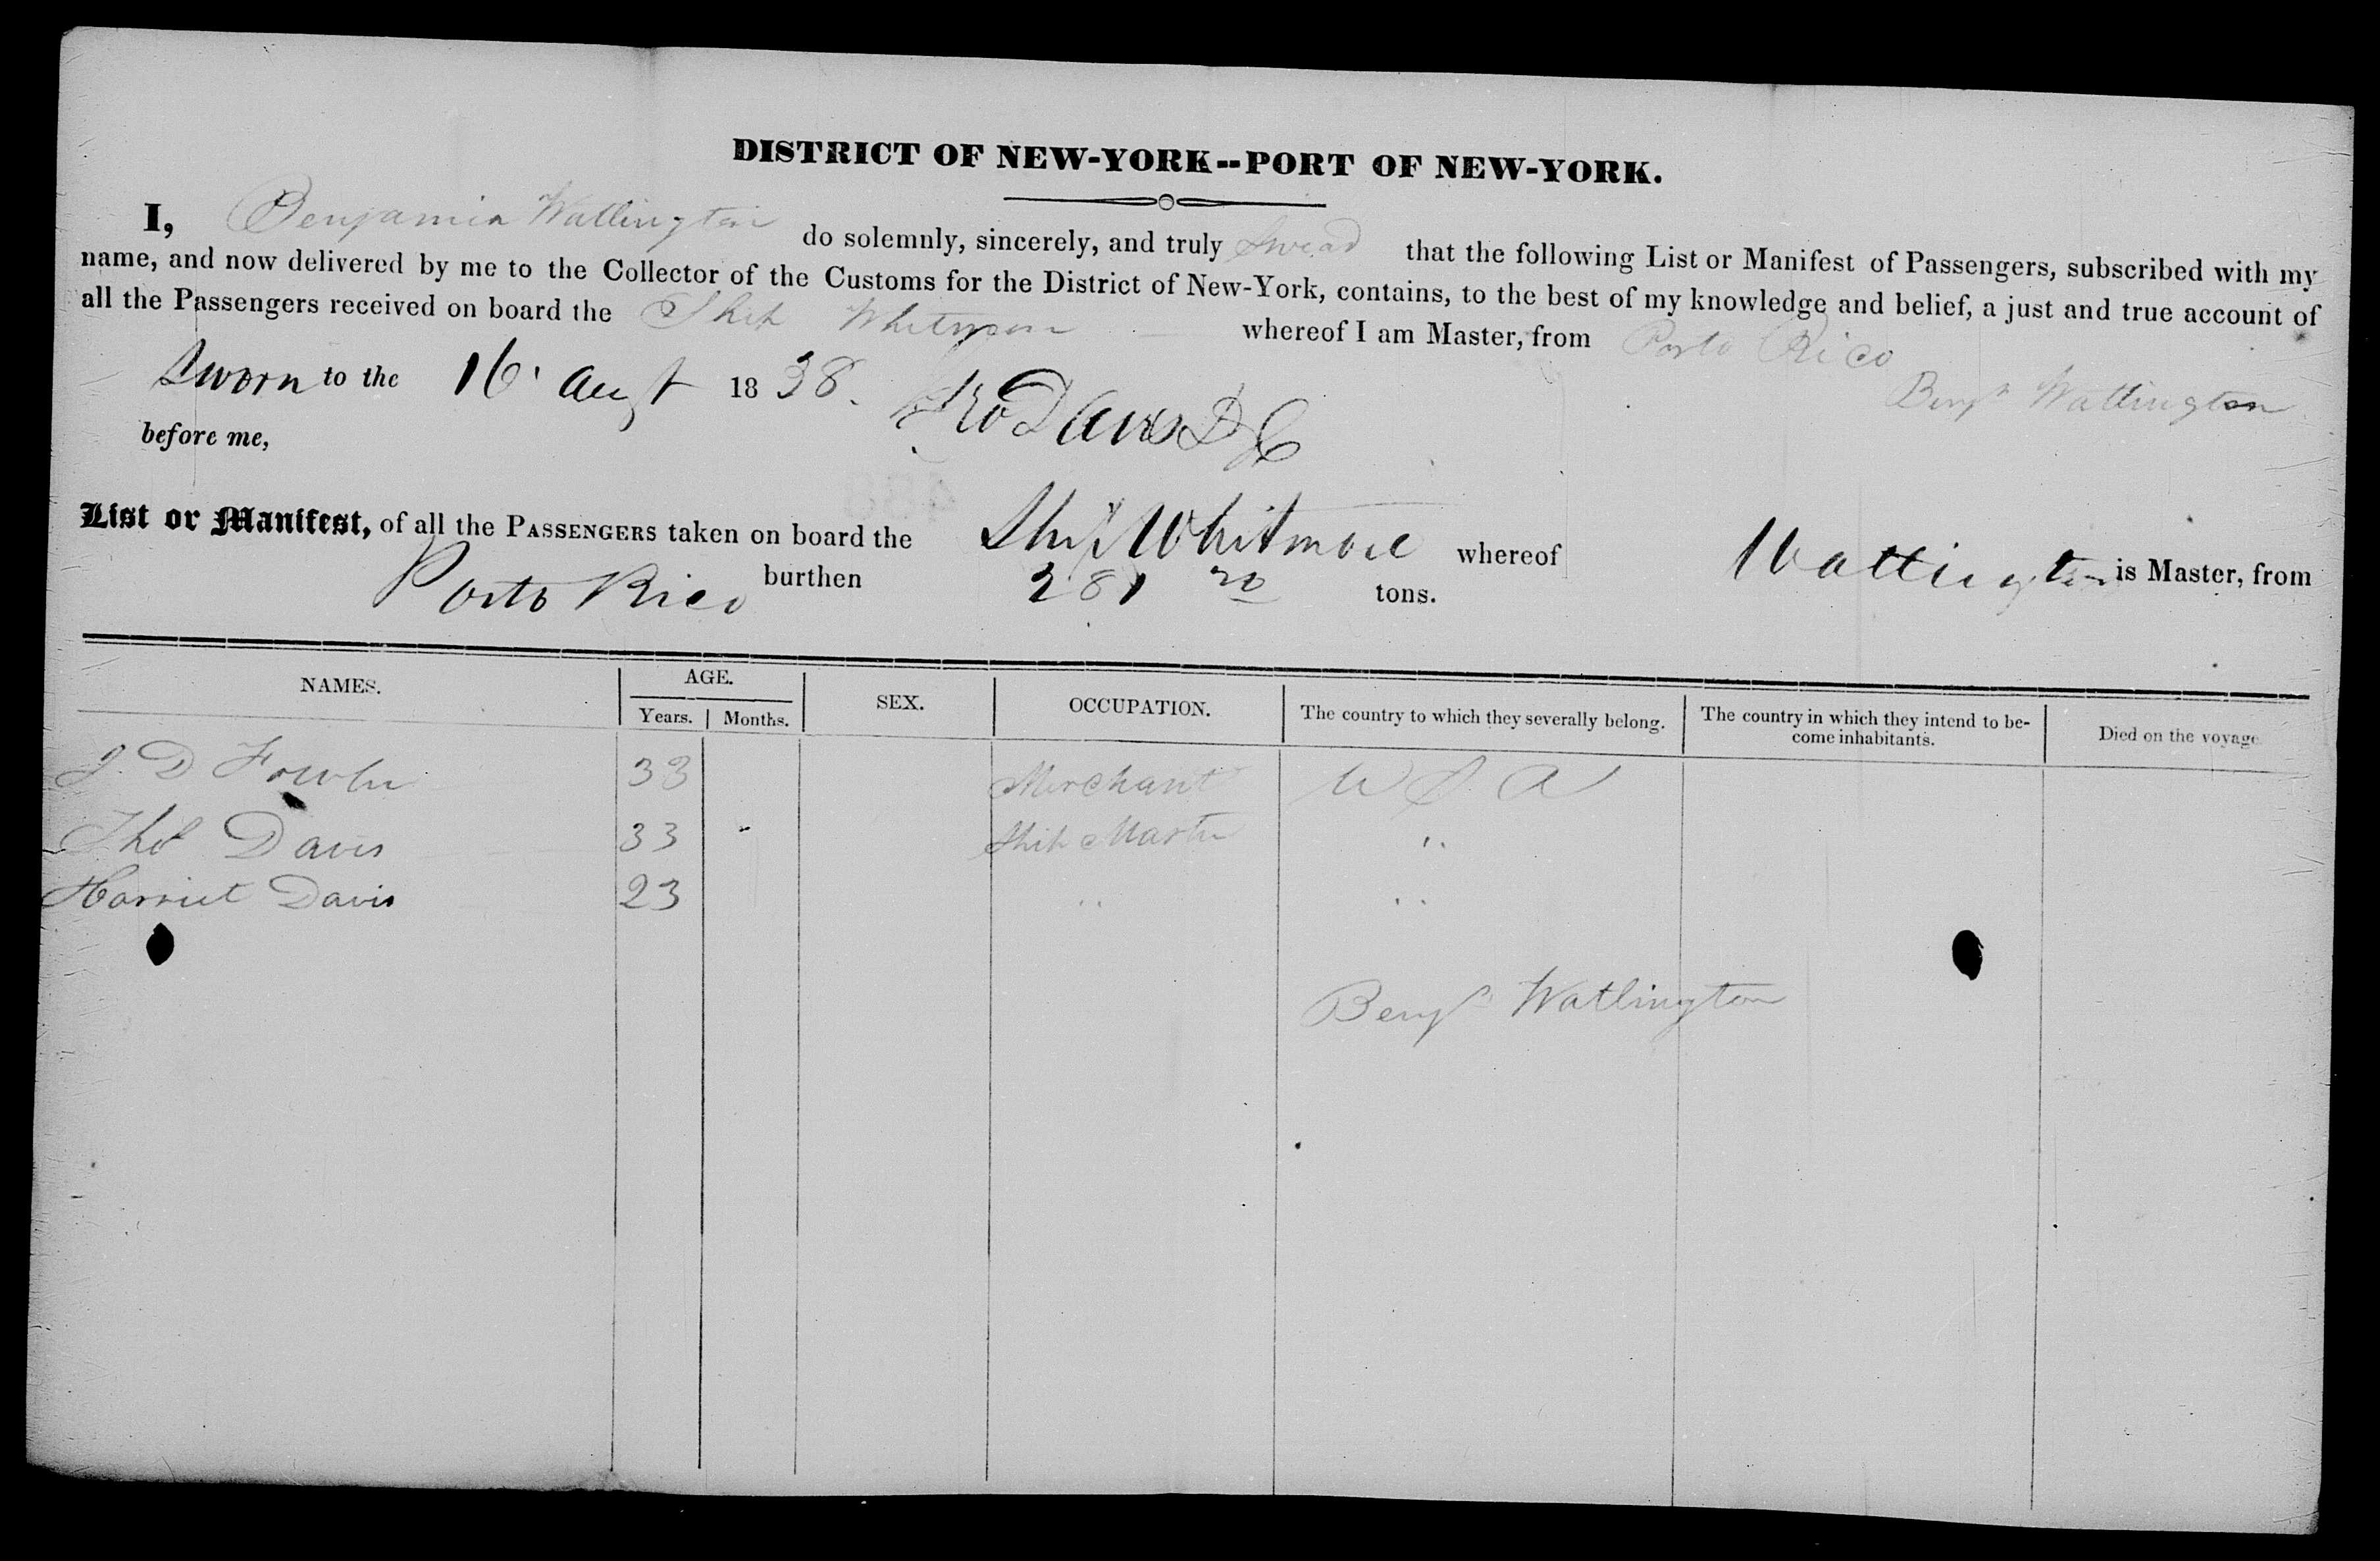 DISTRICT OF NEW-YORK--PORT OF NEW-YORK.
I, Benjamin Watlington do solemnly, sincerely, and truly that the following List or Manifest of Passengers, subscribed with my
name, and now delivered by me to the Collector of the Customs for the District of New-York, contains, to the best of my knowledge and belief, a just and true account of
all the Passengers received on board the Ship Whitmore whereof I am Master, from Porto Rico
Sworn to the 16 Augt 1838. Davis
Benjn Watlington
before me,
List or Manifest, of all the PASSENGERS taken on board the Ship Whitmore whereof Watlington is Master, from
Porto Rico burthen 281 tons.
NAMES. AGE. SEX. OCCUPATION. The country to which they severally belong. The country in which they intend to be- Died on the voyage
Years. Months. come inhabitants.
J. D Fowler 33 Merchant U S A
Thos Davis 33 Ship Master "
Harriet Davis 23 " "
Benjn Watlington